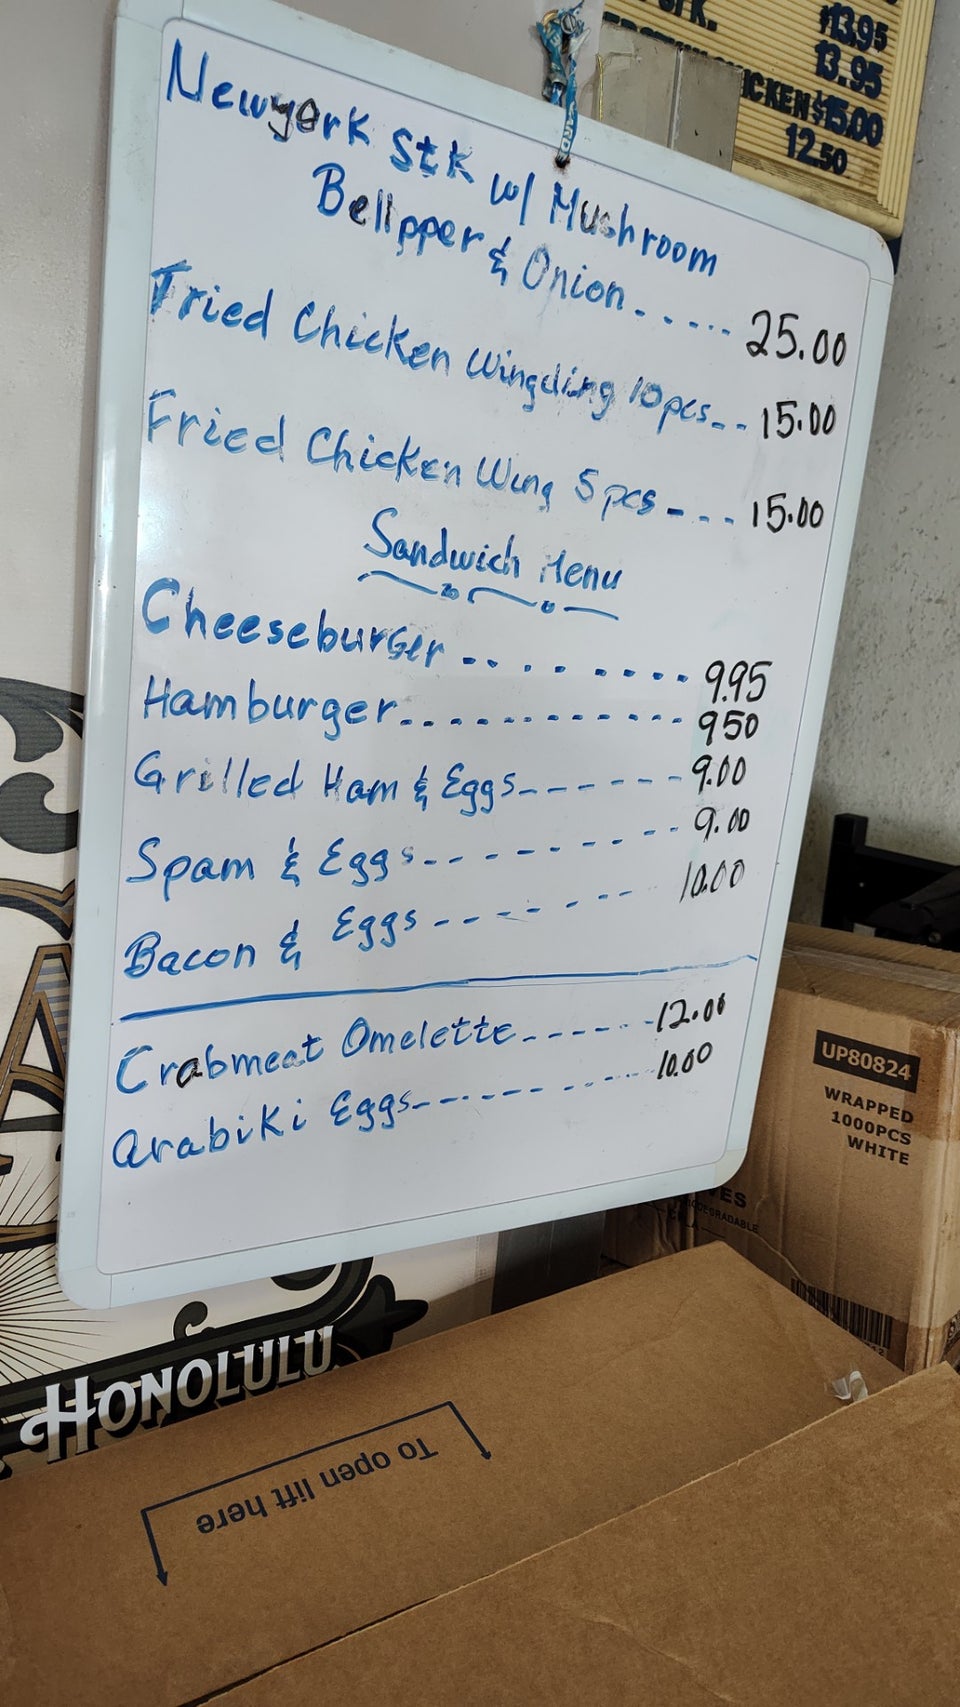 $13.95
13.95
ICKEN $15.00
12.50
Newyork Stk w/ Mushroom
Bellpper & Onion..... 25.00
Fried Chicken Wingding 10pcs.-- 15.00
Fried Chicken Wing 5pcs ---- 15.00
Sandwich Menu
Cheeseburger .. . . ..... 9.95
Hamburger............. 950
Grilled Ham & Eggs------- 9.00
Spam & Eggs.-------- 9.00
Bacon & Eggs------- 10.00
Crabmeat Omelette------ 12.00
Arabiki Eggs---------- 10.00
UP80824
WRAPPED
1000PCS
WHITE
HONOLULU
To open lift here